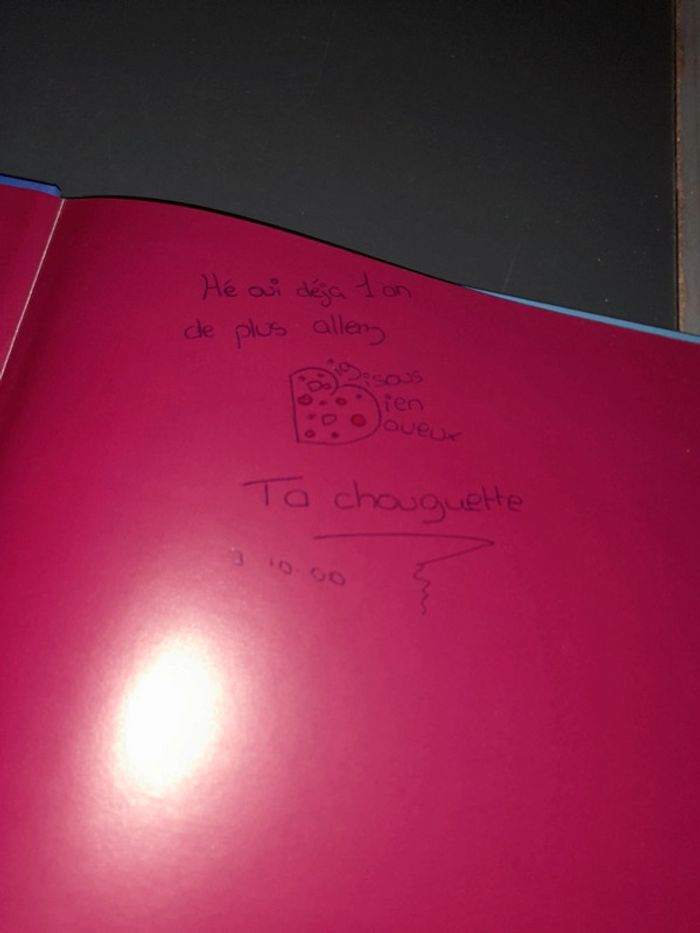 Hé oui déja 1 an
de plus allez
Big
isous
ien
aveux
Ta chouguette
3.10.00